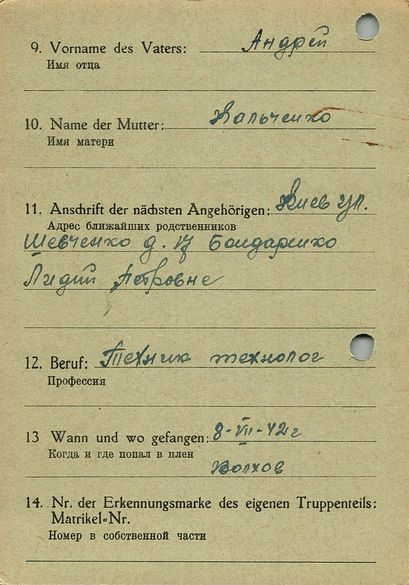 9. Vorname des Vaters: Андрей
Имя отца
10. Name der Mutter: Кальченко
Имя матери
11. Anschrift der nächsten Angehörigen: Киев ул.
Адрес ближайших родственников
Шевченко д. 17 Бондаренко
Лидии Петровне
12. Beruf: Техник технолог
Профессия
13 Wann und wo gefangen: 8-VII-42г
Когда и где попал в плен
Волхов
14. Nr. der Erkennungsmarke des eigenen Truppenteils:
Matrikel-Nr.
Номер в собственной части